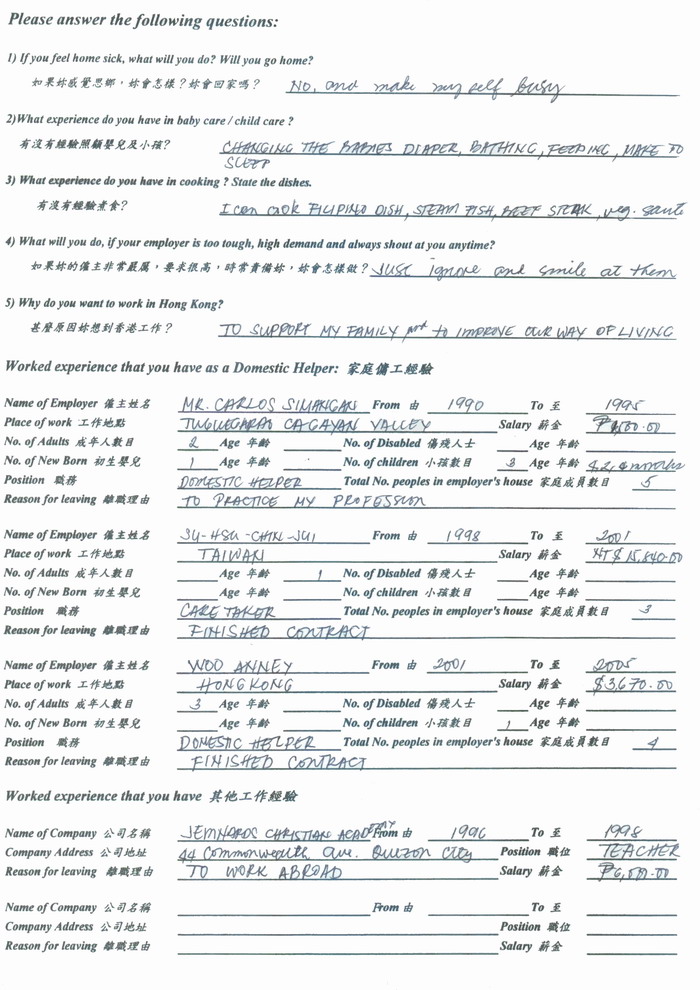 Please answer the following questions:
1) If you feel home sick, what will you do? Will you go home?
如果妳感覺思鄉，妳會怎樣？妳會回家嗎？ No, and make my self busy
2)What experience do you have in baby care / child care ?
有沒有經驗照顧嬰兒及小孩？ CHANGING THE BABIES DIAPER, BATHING, FEEDING, MAKE TO
SLEEP
3) What experience do you have in cooking ? State the dishes.
有沒有經驗煮食？ I can cook FILIPINO DISH, STEAM FISH, BEEF STEAK, veg. saute
4) What will you do, if your employer is too tough, high demand and always shout at you anytime?
如果妳的僱主非常嚴厲，要求很高，時常責備妳，妳會怎樣做？ JUST ignore and smile at them
5) Why do you want to work in Hong Kong?
甚麼原因妳想到香港工作？ TO SUPPORT MY FAMILY and to IMPROVE OUR WAY OF LIVING
Worked experience that you have as a Domestic Helper: 家庭傭工經驗
Name of Employer 僱主姓名 MR. CARLOS SIMANGAN From 由 1990 To 至 1995
Place of work 工作地點 TUGUEGARAO CAGAYAN VALLEY Salary 薪金
No. of Adults 成年人數目 2 Age 年齡 No. of Disabled 傷殘人士 Age 年齡
No. of New Born 初生嬰兒 1 Age 年齡 No. of children 小孩數目 3 Age 年齡 months
Position 職務 DOMESTIC HELPER Total No. peoples in employer's house 家庭成員數目 5
Reason for leaving 離職理由 TO PRACTICE MY PROFESSION
Name of Employer 僱主姓名 SU-HSU-CHIN-JUI From 由 1998 To 至 2001
Place of work 工作地點 TAIWAN Salary 薪金 NT$ 15,840.00
No. of Adults 成年人數目 Age 年齡 1 No. of Disabled 傷殘人士 Age 年齡
No. of New Born 初生嬰兒 Age 年齡 No. of children 小孩數目 Age 年齡
Position 職務 CARE TAKER Total No. peoples in employer's house 家庭成員數目 3
Reason for leaving 離職理由 FINISHED CONTRACT
Name of Employer 僱主姓名 WOO ANNEY From 由 2001 To 至 2005
Place of work 工作地點 HONG KONG Salary 薪金 $3,670.00
No. of Adults 成年人數目 3 Age 年齡 No. of Disabled 傷殘人士 Age 年齡
No. of New Born 初生嬰兒 Age 年齡 No. of children 小孩數目 1 Age 年齡
Position 職務 DOMESTIC HELPER Total No. peoples in employer's house 家庭成員數目 4
Reason for leaving 離職理由 FINISHED CONTRACT
Worked experience that you have 其他工作經驗
Name of Company 公司名稱 JEMNARDS CHRISTIAN ACADEMY From 由 1996 To 至 1998
Company Address 公司地址 44 Commonwealth ave. Quezon City Position 職位 TEACHER
Reason for leaving 離職理由 TO WORK ABROAD Salary 薪金
Name of Company 公司名稱 From 由 To 至
Company Address 公司地址 Position 職位
Reason for leaving 離職理由 Salary 薪金